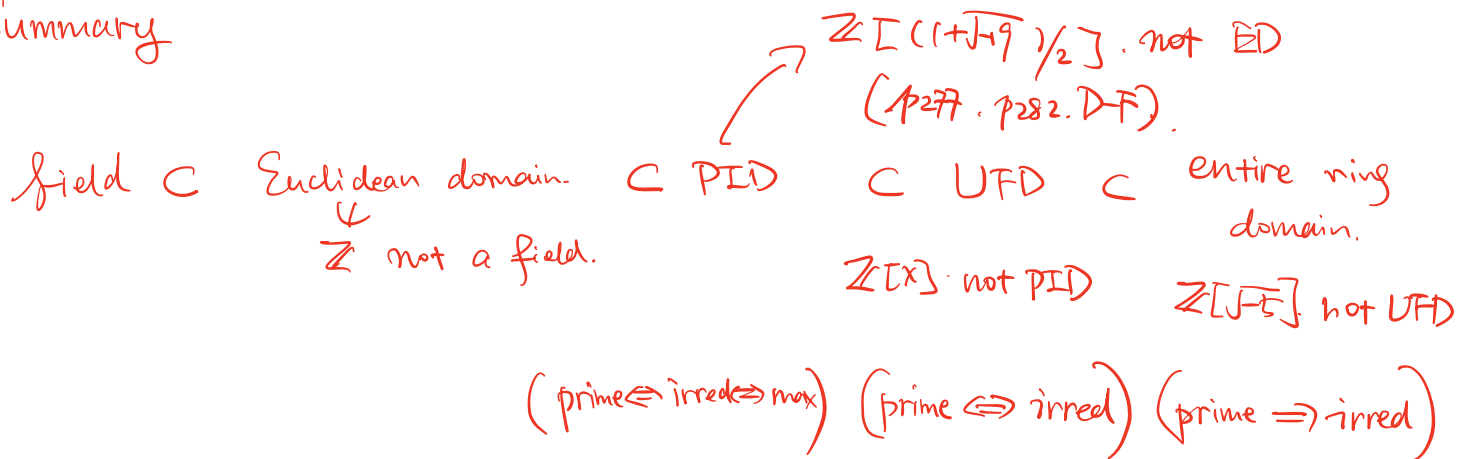 ummary
ℤ[(1+√-19)/2]. not ED
(p277. p282. D-F).
field ⊂ Euclidean domain. ⊂ PID ⊂ UFD ⊂ entire ring
domain.
ℤ not a field.
ℤ[x] not PID
ℤ[√-5] not UFD
(prime ⇔ irred ⇔ max) (prime ⇔ irred) (prime ⇒ irred)